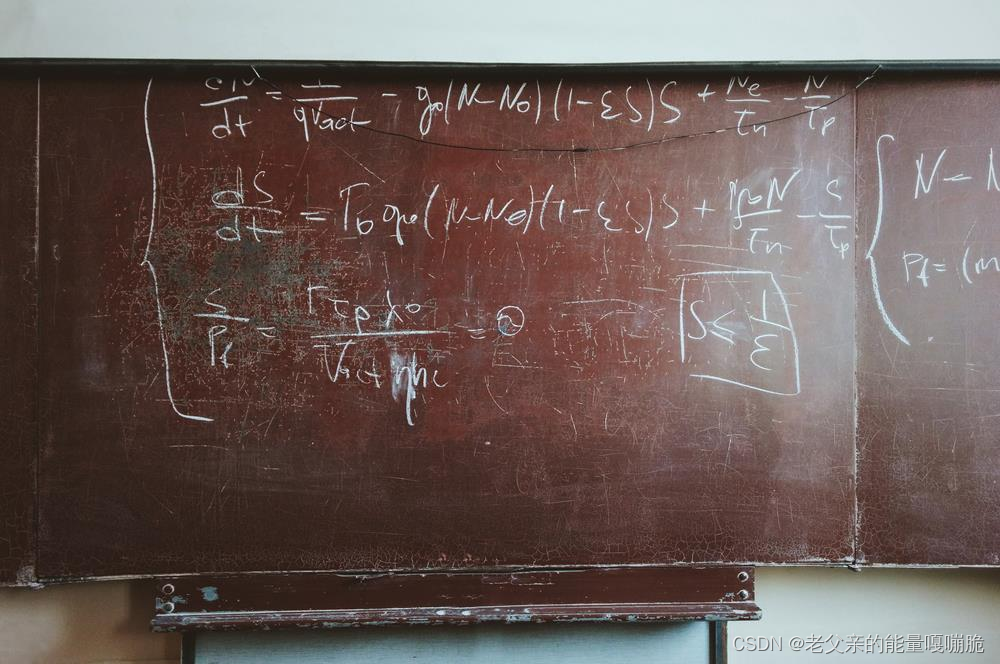 dN/dt = I/qVact - g₀(N-N₀)(1-εS)S + Ne/τn - N/τp
dS/dt = Γ₀g₀(N-N₀)(1-εS)S + N/τn - S/τp
S/Pf = Γτpλ₀/Vactηhc = ②
S ≤ 1/ε
N - N
Pf = (m
CSDN @老父亲的能量嘎嘣脆